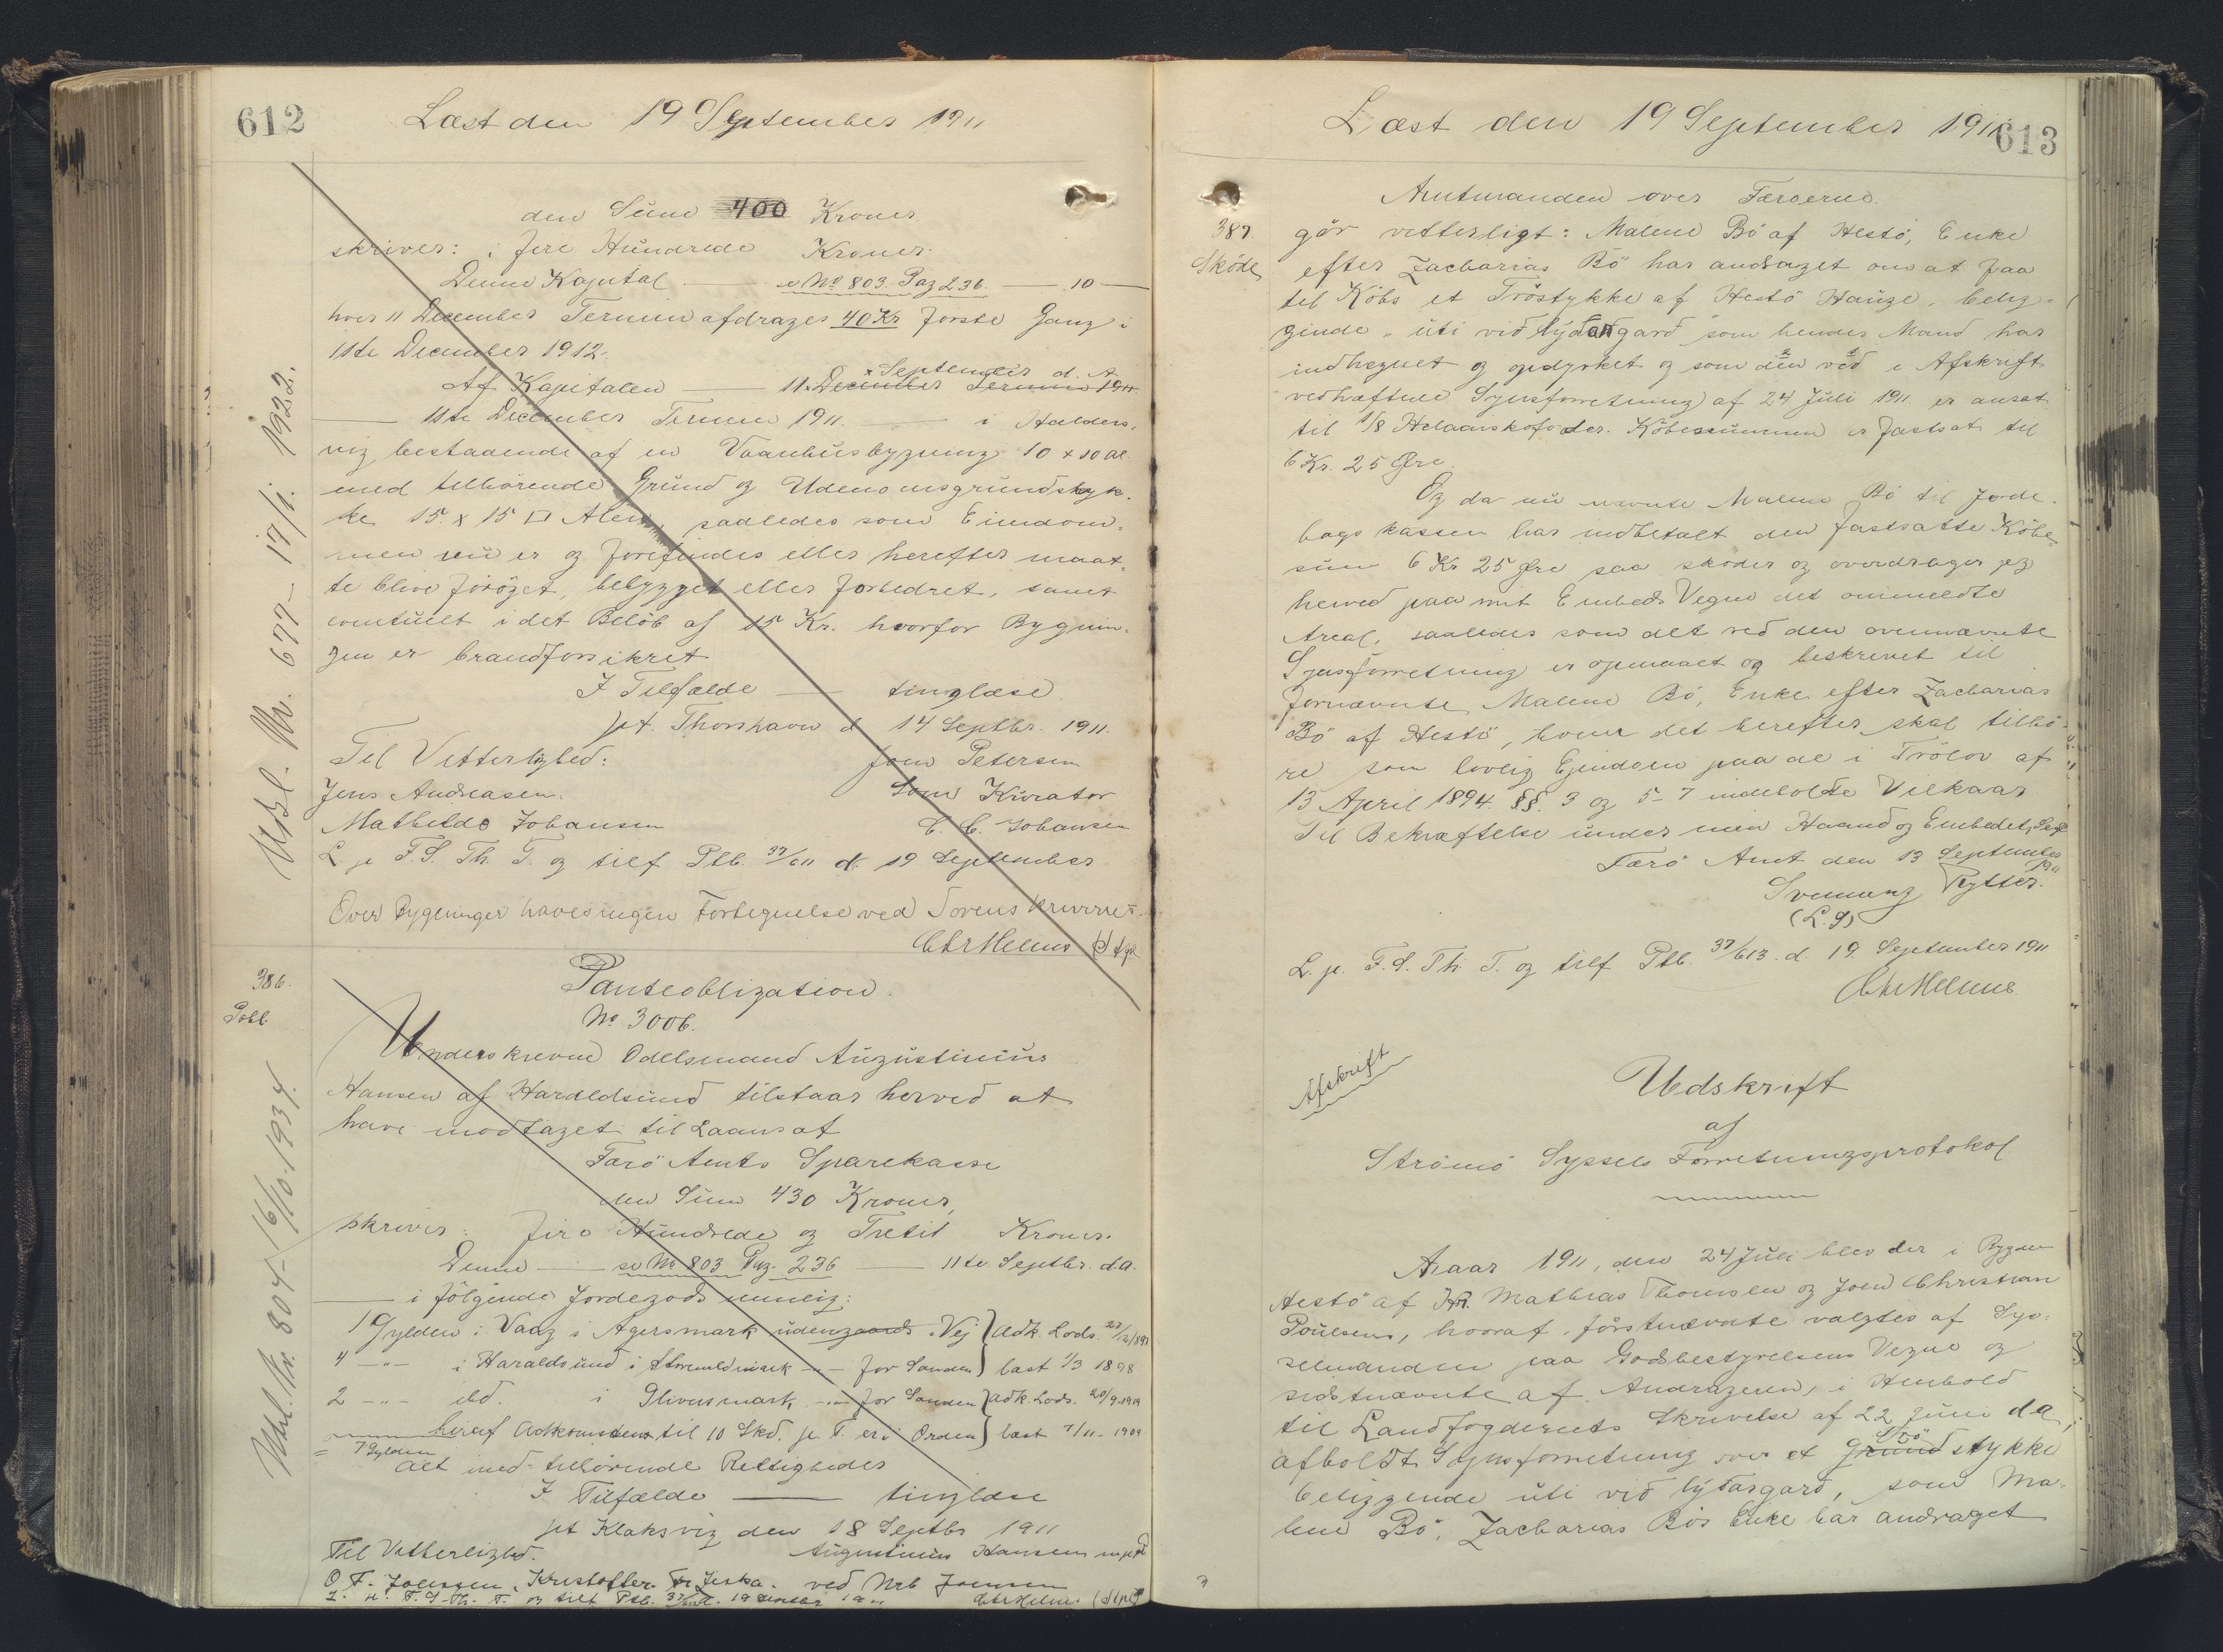 612
Læst den 19 September 1911
den Sum 400 Kroner
skriver: i fire Hundrede Kroner.
Denne Kapital — se No 803. Pag 236. — 10 —
hver 11 December Termin afdrages 40 Kr første Gang i
11te December 1912.
Af Kapitalen — 11. December Termin 1911
x September d. A.
— 11te December Termin 1911. — i Halders-
vig bestaaende af en Vaanhusbygning 10 x 10 al.
med tilhörende Grund og Udenomsgrundstyk-
ke 15 x 15 □ Alen, saaledes som Eiendom-
men nu er og forefindes eller herefter maat-
te blive foröget, bebygget eller forbedret, samt
eventuelt i det Belöb af 15 Kr. hvorfor Bygnin-
gen er brandforsikret
I Tilfælde — tinglæse.
pt. Thorshavn d 14 Septbr. 1911.
Til Vitterlighed: Joen Petersen
Jens Andreasen. Som Kurator
Mathilde Johansen C. C. Johansen
L. p. F. S. Th. T. og tilf Ptb. 37/611 d. 19 September
Over Bygninger haves ingen Fortegnelse ved Sorenskriveriet.
Chr Helms
Udsl. Nr. 677 - 17/1. 1922.
386.
Pobl.
Panteobligation.
No 3006.
Underskrevne Odelsmand Augustinius
Hansen af Haraldsund tilstaar herved at
have modtaget til Laans af
Færö Amts Sparekasse
den Sum 430 Kroner,
skriver: fire Hundrede og Tretti Kroner.
Denne — se No 803 Pag. 236 — 11te Septbr. d.A.
— i fölgende Jordegods nemlig:
1 Gylden i Vaag i Agersmark udengaards. Vej } Adk. Lods. 27/12 1893
4 —"— i Haraldsund i — for Sanden } læst 1/3 1898
2 —"— ibd. i — for Sanden } Adk. Lods. 20/9 1909
heraf Adkomsten til 10 Skd. p. T. er i Orden } læst 7/11 - 1909
= 7 Gylden
alt med tilhörende Rettigheder
I Tilfælde — tinglæse
pt Klaksvig den 18 Septbr 1911
Til Vitterlighed. Augustinius Hansen m.p.P.
O F. Joensen, Kristoffer ved Nrb Joensen
L. p. F. S. Th. T. og tilf Ptb. 37/ d. 19 Septbr 1911 Chr Helms
Udsl. Nr. 804 - 16/10. 1934.
613
Læst den 19 September 1911
Amtmanden over Færöerne.
387.
Sköde
gör vitterligt: Malene Bö af Hestö, Enke
efter Zacharias Bö har andraget om at faa
til Köbs et Tröstykke af Hestö Hauge, belig-
gende „úti við lýðargarð" som hendes Mand har
indhegnet og opdyrket og som den ved i Afskrift
vedhæftede Synsforretning af 24 Juli 1911 er ansat
til 1/8 Helaarskofoder. Köbesummen er fastsat til
6 Kr. 25 Øre.
Og da nu nævnte Malene Bö til Jorde-
bogskassen har indbetalt den fastsatte Köbe-
sum 6 Kr 25 Øre saa sköder og overdrager jeg
herved paa mit Embeds Vegne det ommeldte
Areal, saaledes som det ved den ovennævnte
Synsforretning er opmaalt og beskrevet til
fornævnte Malene Bö, Enke efter Zacharias
Bö af Hestö, hvem det herefter skal tilhö-
re som lovlig Ejendom paa de i Trölov af
13 April 1894. §§. 3 og 5-7 indeholdte Vilkaar
Til Bekræftelse under min Haand og Embedets Segl
Færö Amt den 13 September
1911
Svenning Rytter.
(L. S)
L. p. F. S. Th. T. og tilf Ptb. 37/613. d. 19 September 1911
Chr Helms
Afskrift
Udskrift
af
Strömö Syssels Forretningsprotokol
Aar 1911, den 24 Juli blev der i Bygden
Hestö af Mathias Thomsen og Joen Christian
Poulsens, hvoraf förstnævnte valgtes af Sys-
selmanden paa Godsbestyrelsens Vegne og
sidstnævnte af Andrageren, i Henhold
til Landfogderiets Skrivelse af 22 Juni d A,
afholdt Synsforretning over et Grundstykke
Trö
beliggende úti við lýðargarð, som Ma-
lene Bö, Zacharias Bös Enke har andraget